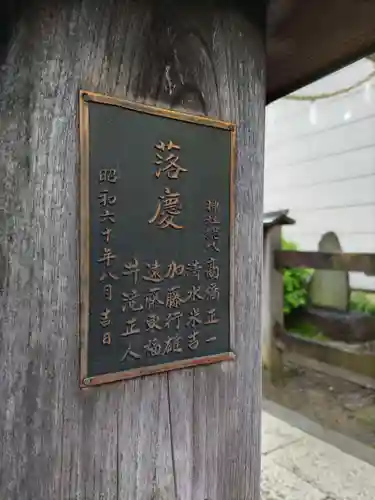 落慶
神社総代 高橋正一
清水米吉
加藤行雄
遠藤
井滝正人
昭和六十年八月吉日